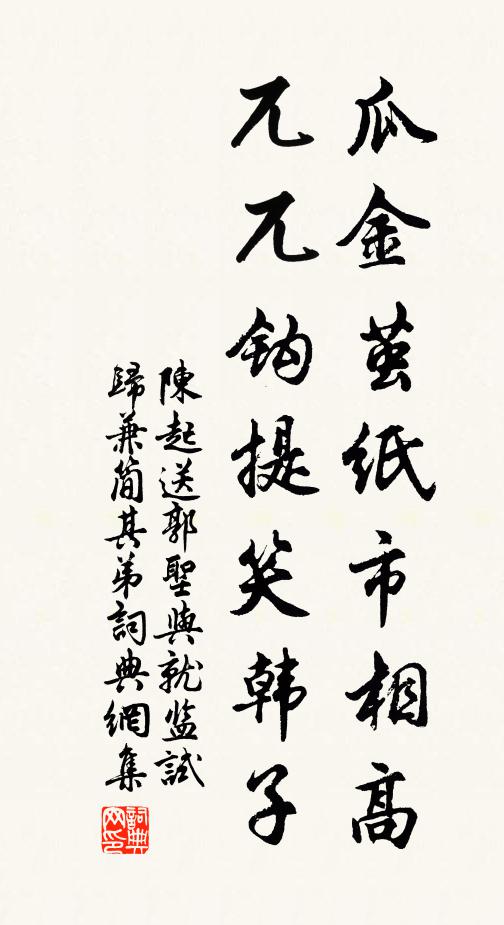 瓜金茧纸市相高
兀兀钩提笑韩子
陳起送郭聖與就监試
歸兼简其弟詞典網集
詞典
网印